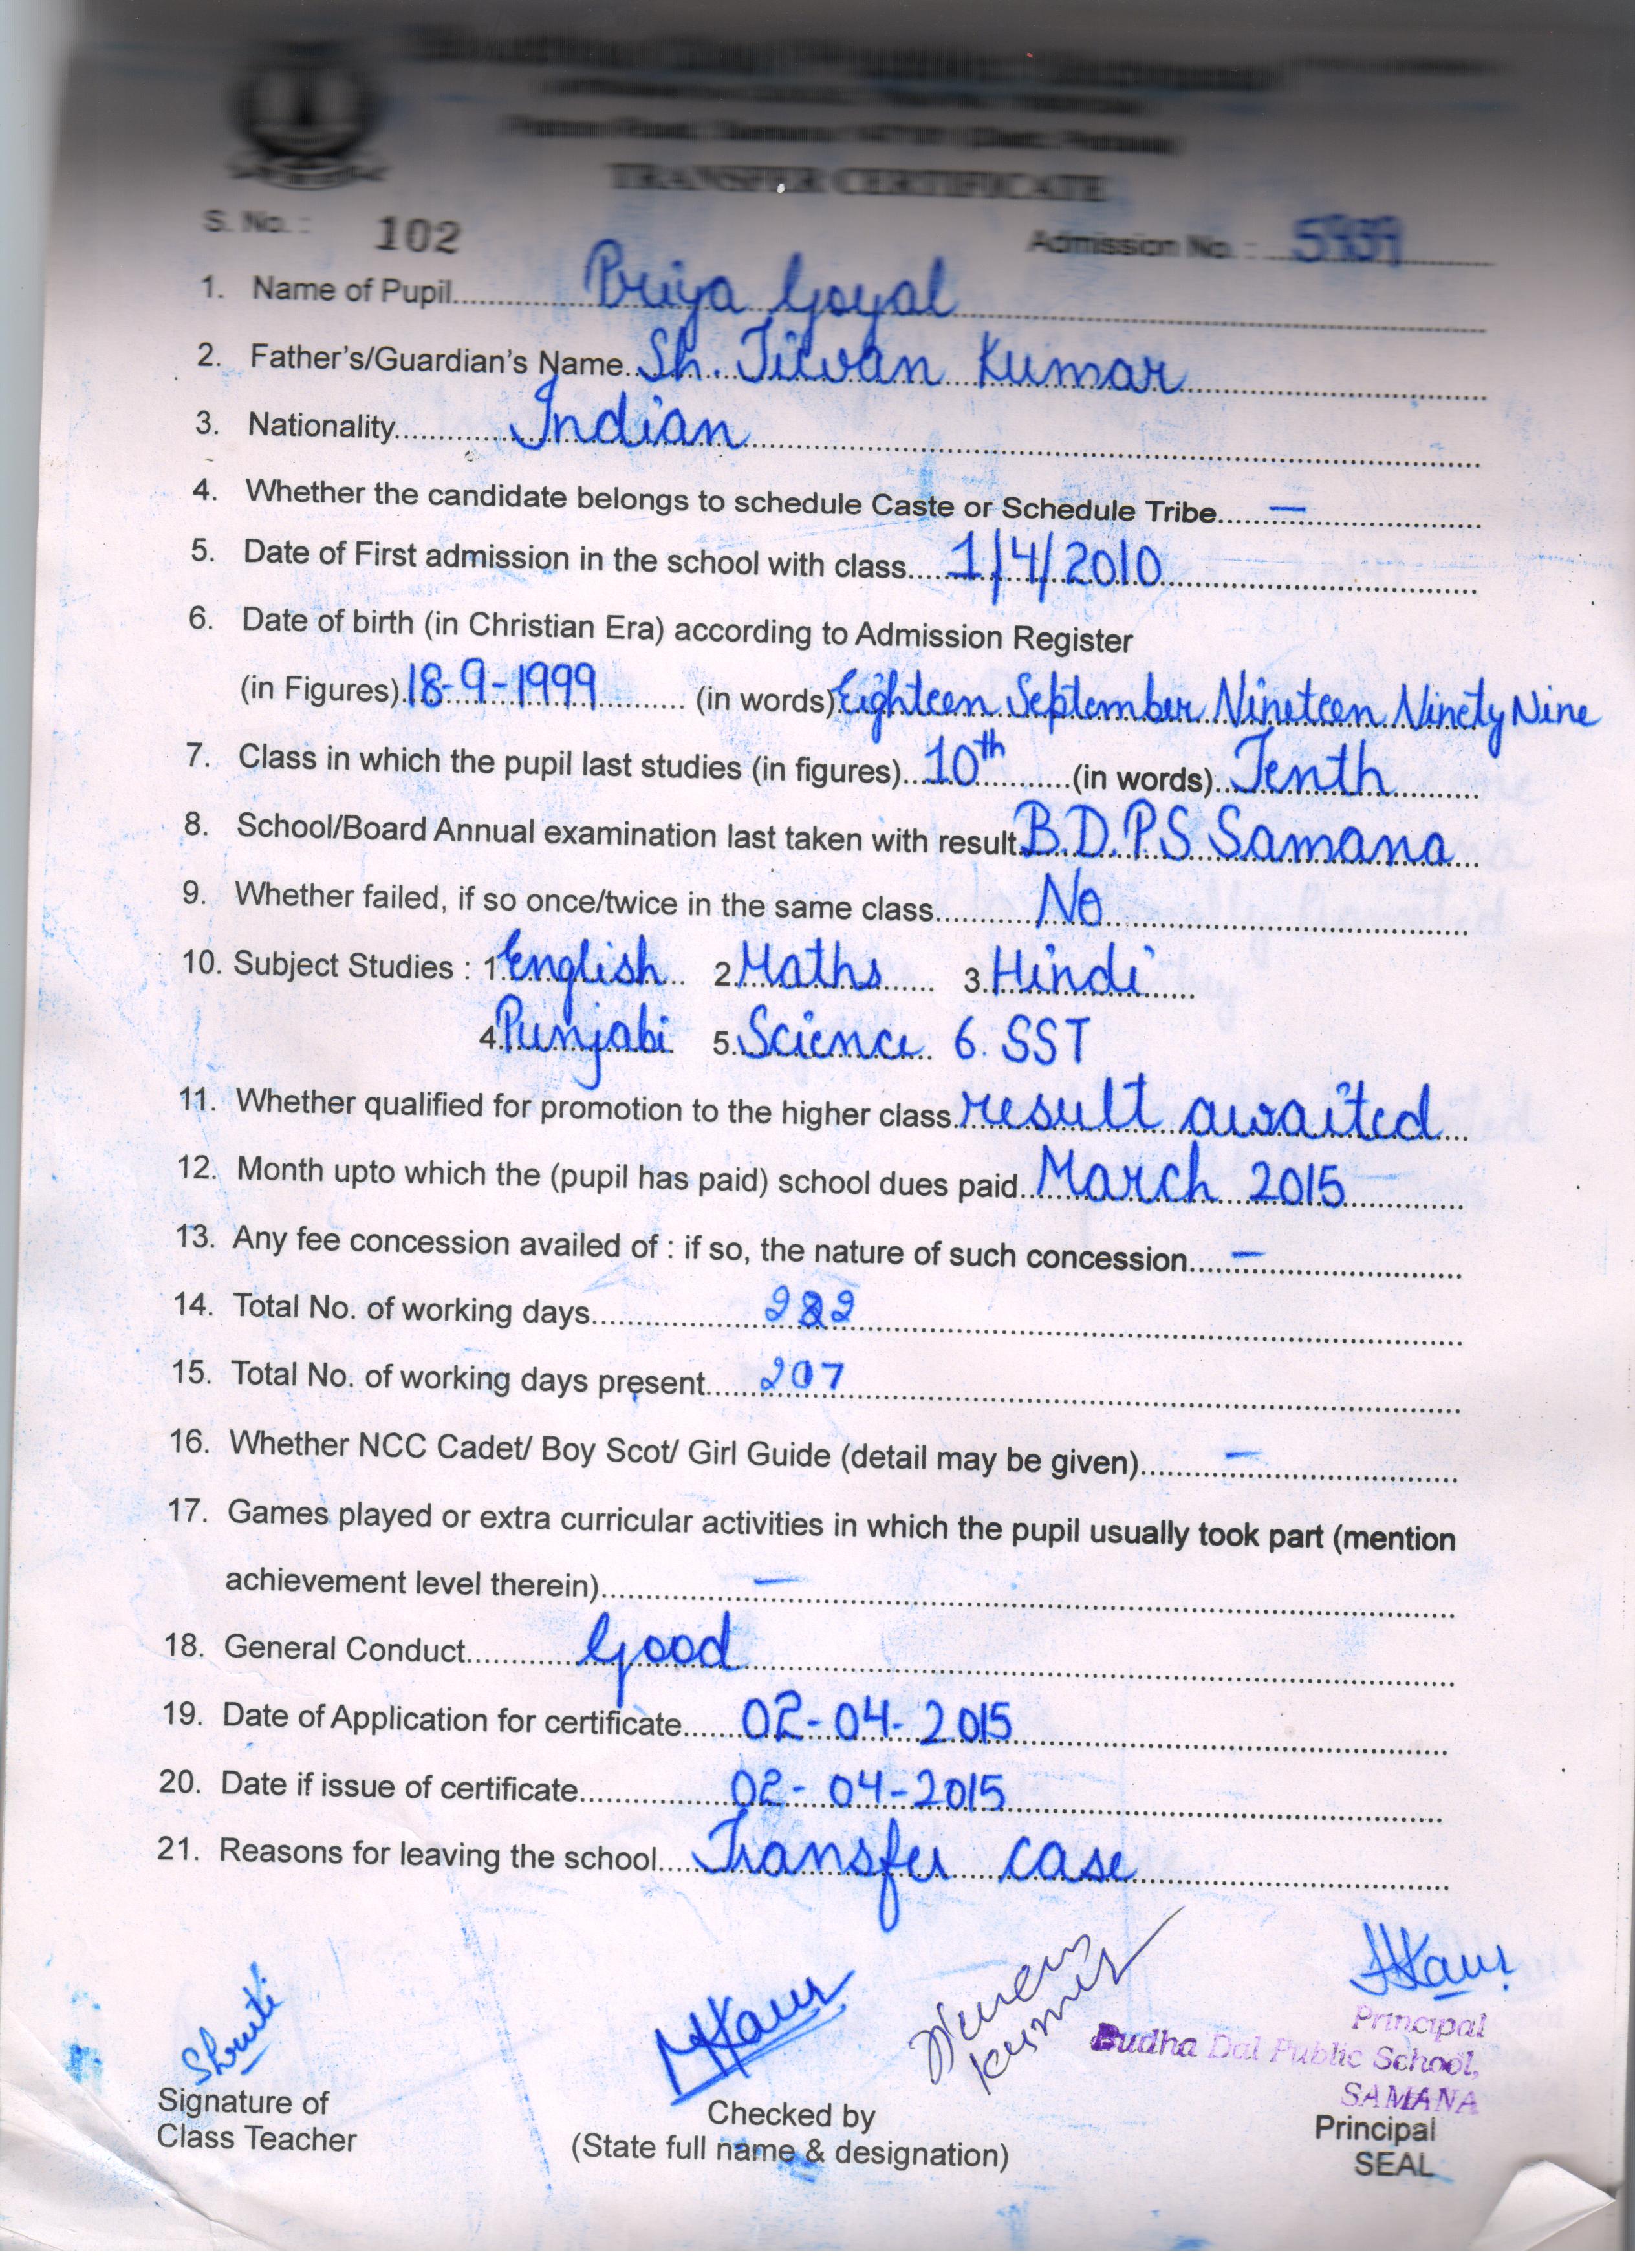 TRANSFER CERTIFICATE
S. No. : 102 Admission No. :
1. Name of Pupil Priya Goyal
2. Father's/Guardian's Name Sh. Jiwan Kumar
3. Nationality Indian
4. Whether the candidate belongs to schedule Caste or Schedule Tribe —
5. Date of First admission in the school with class 1/4/2010
6. Date of birth (in Christian Era) according to Admission Register
(in Figures) 18-9-1999 (in words) Eighteen September Nineteen Ninety Nine
7. Class in which the pupil last studies (in figures) 10th (in words) Tenth
8. School/Board Annual examination last taken with result B.D.P.S Samana
9. Whether failed, if so once/twice in the same class No
10. Subject Studies : 1. English 2. Maths 3. Hindi
4. Punjabi 5. Science 6. SST
11. Whether qualified for promotion to the higher class result awaited
12. Month upto which the (pupil has paid) school dues paid March 2015
13. Any fee concession availed of : if so, the nature of such concession —
14. Total No. of working days
15. Total No. of working days present 207
16. Whether NCC Cadet/ Boy Scot/ Girl Guide (detail may be given) —
17. Games played or extra curricular activities in which the pupil usually took part (mention
achievement level therein) —
18. General Conduct Good
19. Date of Application for certificate 02-04-2015
20. Date if issue of certificate 02-04-2015
21. Reasons for leaving the school Transfer case
Shruti
Kumar
Principal
Budha Dal Public School,
SAMANA
Signature of
Class Teacher
Checked by
(State full name & designation)
Principal
SEAL